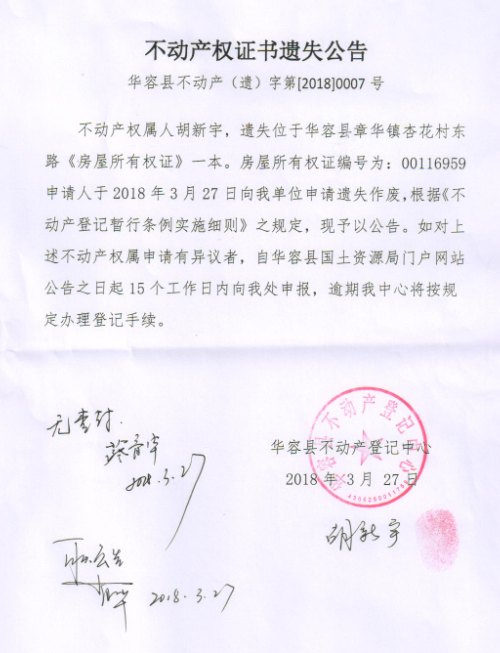 不动产权证书遗失公告
华容县不动产（遗）字第[2018]0007 号
不动产权属人胡新宇，遗失位于华容县章华镇杏花村东
路《房屋所有权证》一本。房屋所有权证编号为：00116959
申请人于 2018 年 3 月 27 日向我单位申请遗失作废，根据《不
动产登记暂行条例实施细则》之规定，现予以公告。如对上
述不动产权属申请有异议者，自华容县国土资源局门户网站
公告之日起 15 个工作日内向我处申报，逾期我中心将按规
定办理登记手续。
无查封.
2018.3.27
华容县不动产登记中心
华容县不动产登记中心
2018 年 3 月 27 日
胡新宇
2018.3.27